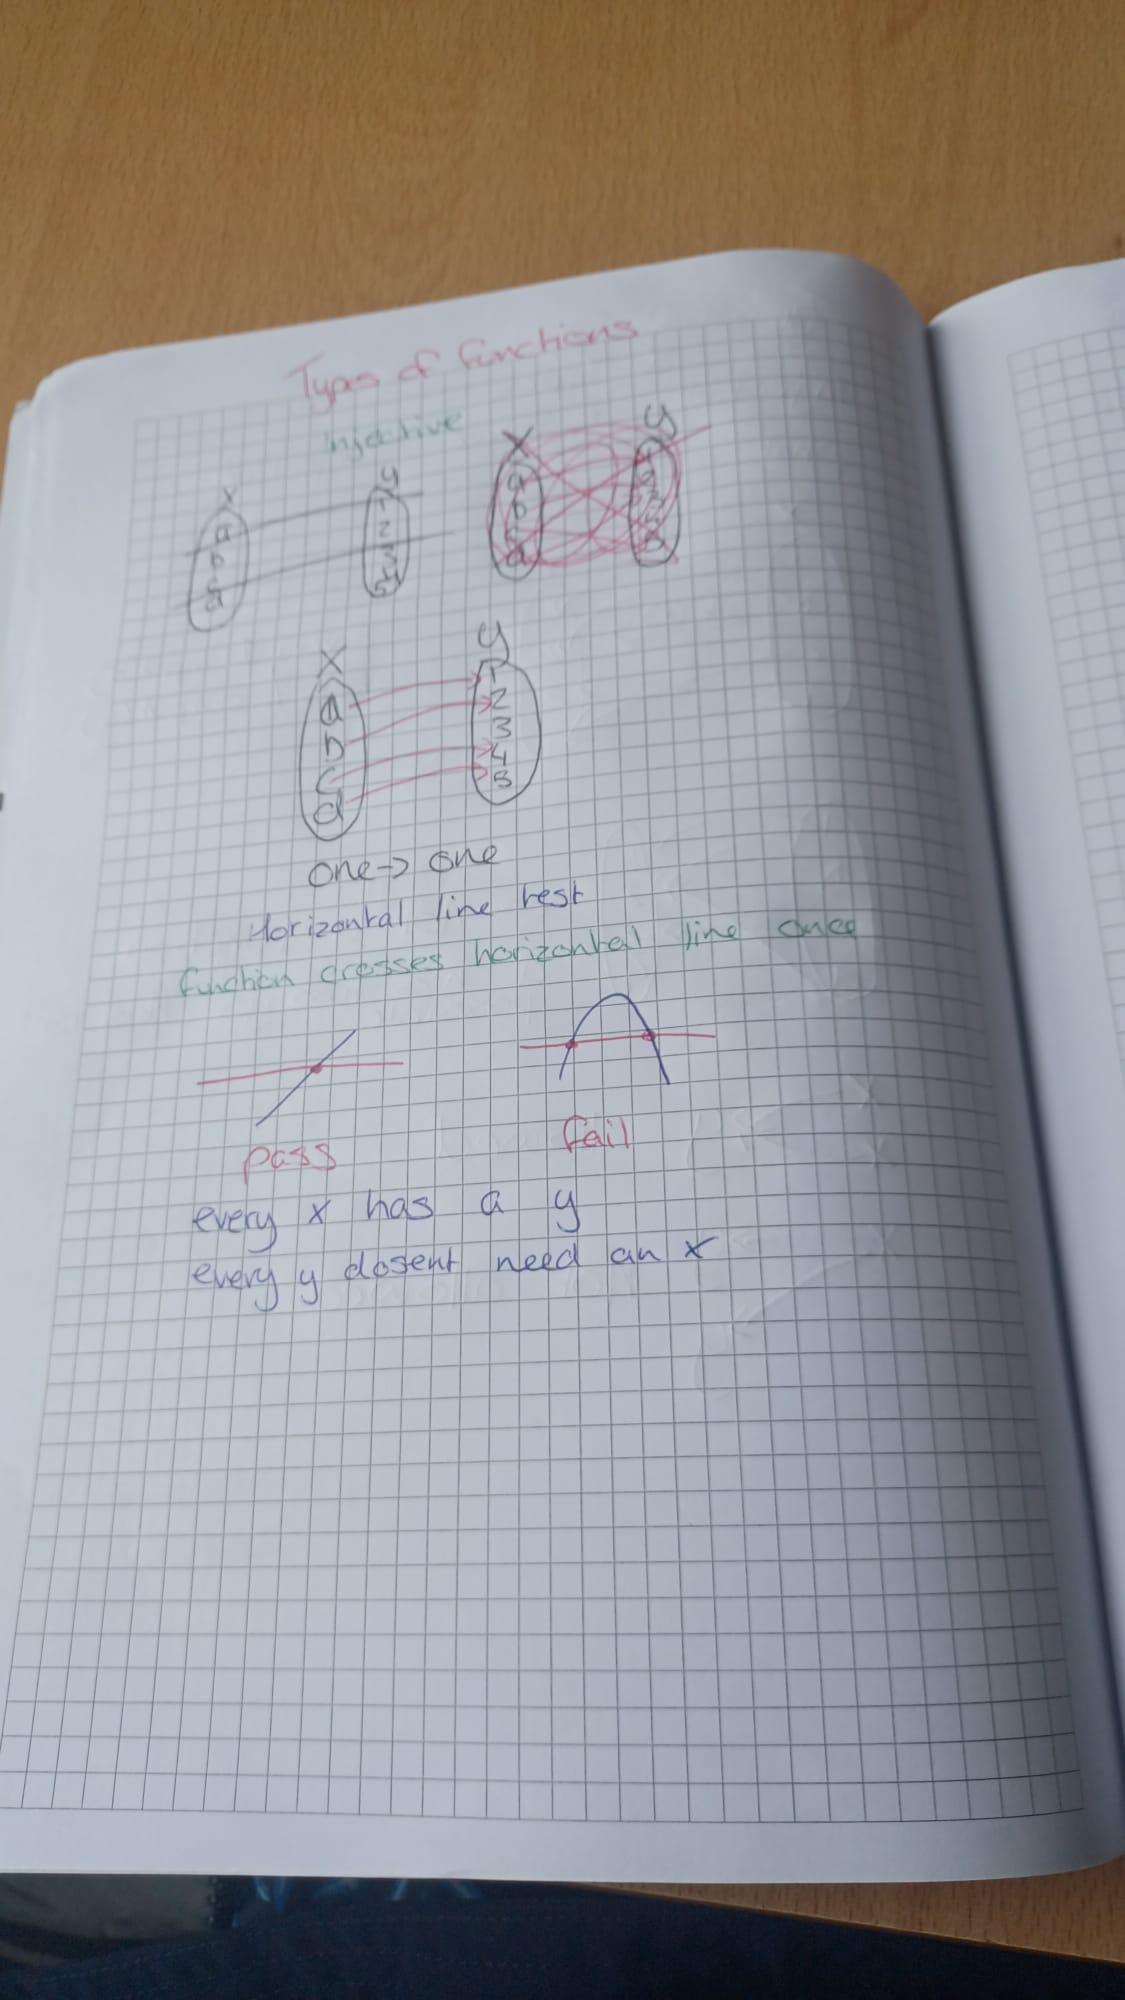 Types of functions
injective
x y
a 1
b 2
x y
x y
a 1
b 2
c 3
d 4
5
one → one
Horizontal line test
function crosses horizontal line once
pass fail
every x has a y
every y dosent need an x